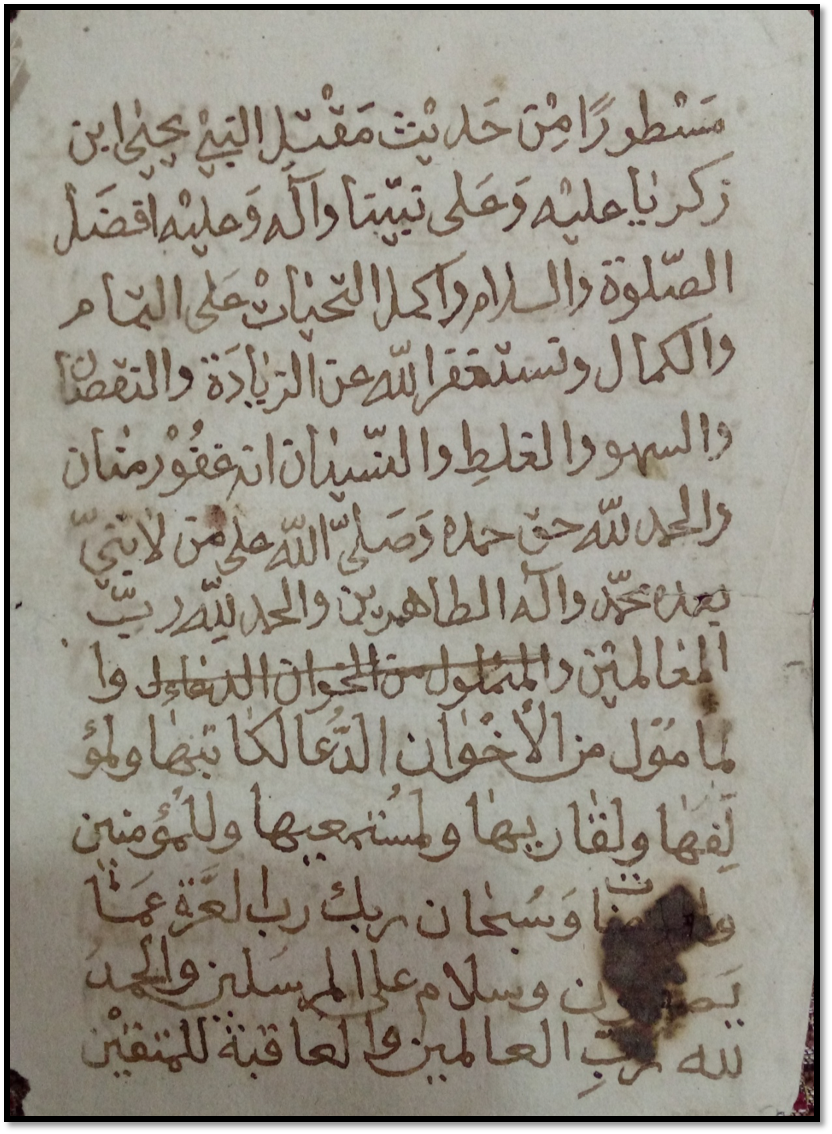 مَسْطورًا مِنْ حَديْث مَقْتِل النبيْ يحيٰى ابن
زكريٰا عليْه وَعَلى نبيّنا وآله وَعليْه افضَل
الصّلوة والسلام واكمل التّحيٰاتْ عَلى التمام
والكمال ونستغفر الله عن الزيٰادَة والنقصٰان
والسهو والغلطِ والنّسيٰان انه غفُوْر منان
والحمد لله حق حمده وَصَلىّ اللّه على من لا نبيّ
بعده محمّد وآله الطاهرين والحمد للّه ربّ
العالميْن والمئمول من الخوان الدعاء وا
لمأموْل من الأخْوٰان الدُّعا لكاتبهٰا ولمؤ
لِّفهٰا ولقٰاريهٰا ولمسُتمعيها وللمُؤمنين
وَسُبحٰان ربك رب العزَّة عمّا
وسلام على المرسَلين والحمدَ
لله ربِّ العالمين والعاقبة للمتقيْن